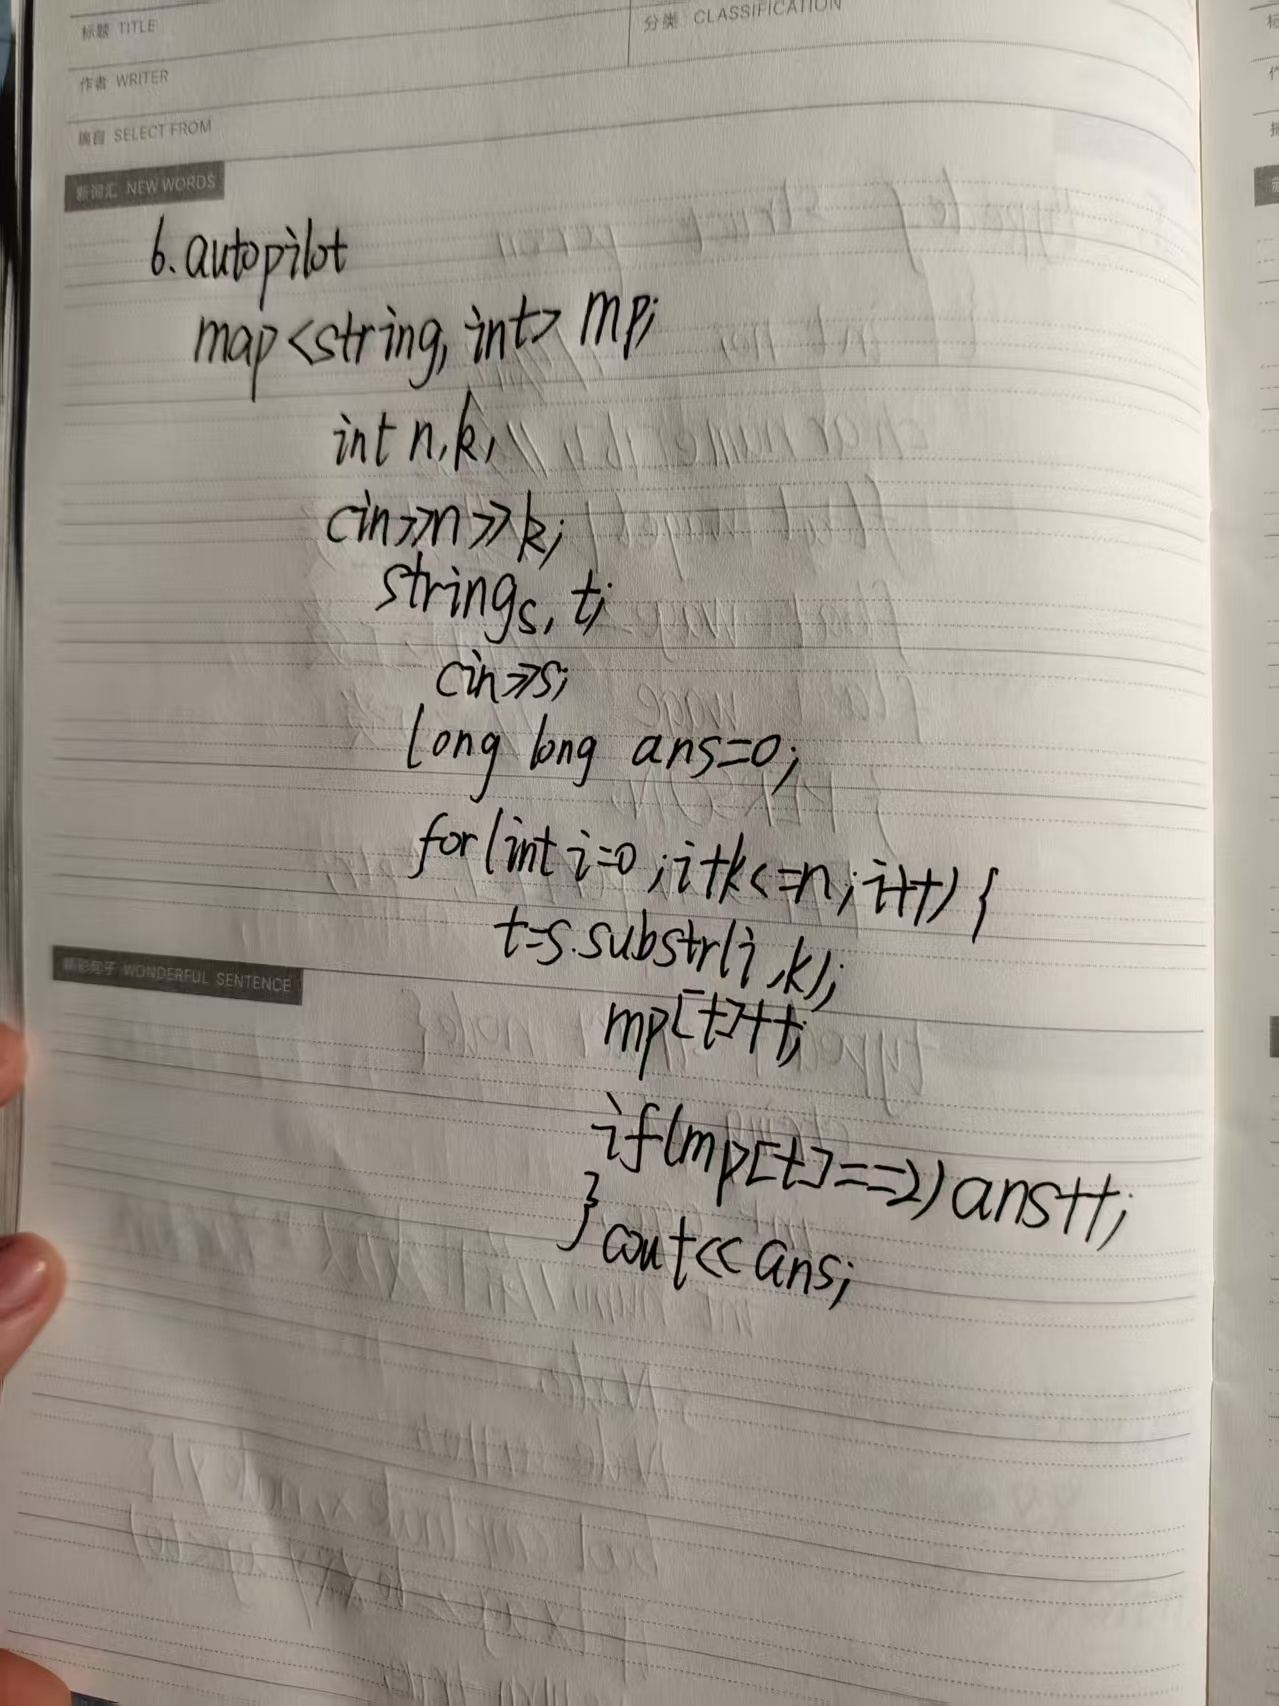 标题 TITLE
分类 CLASSIFICATION
作者 WRITER
摘自 SELECT FROM
新词汇 NEW WORDS
6. autopilot
map<string, int> mp;
int n, k;
cin>>n>>k;
string s, t;
cin>>s;
long long ans=0;
for(int i=0; i+k<=n; i++) {
t=s.substr(i, k);
mp[t]++;
精彩句子 WONDERFUL SENTENCE
if(mp[t]==2) ans++;
} cout<<ans;